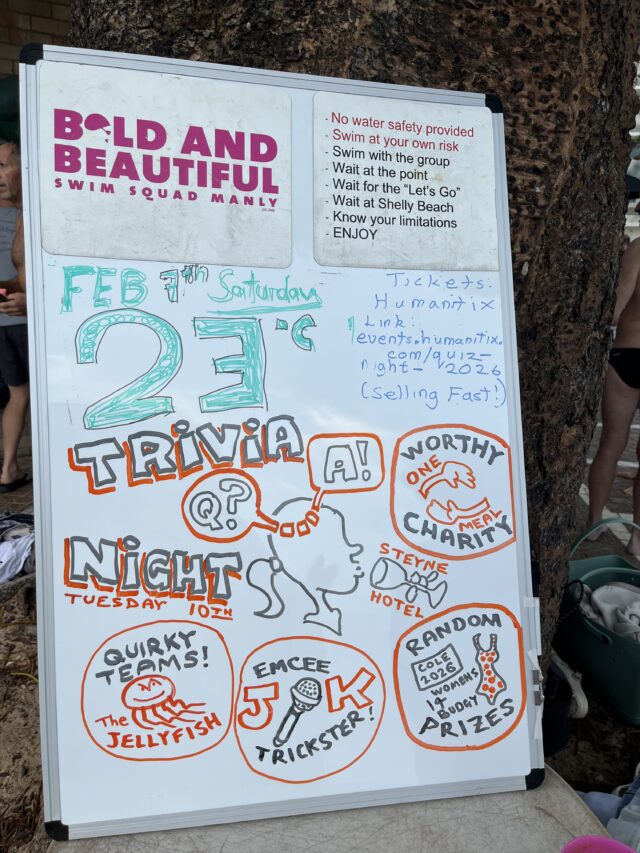 BOLD AND
BEAUTIFUL
SWIM SQUAD MANLY
- No water safety provided
- Swim at your own risk
- Swim with the group
- Wait at the point
- Wait for the "Let's Go"
- Wait at Shelly Beach
- Know your limitations
- ENJOY
FEB 7th Saturday
23°C
Tickets:
Humanitix
Link:
events.humanitix.
com/quiz-
night-2026
(Selling Fast!)
TRIVIA
NIGHT
TUESDAY 10TH
Q?
A!
WORTHY
ONE
MEAL
CHARITY
STEYNE
HOTEL
QUIRKY
TEAMS!
The
JELLYFISH
EMCEE
J K
TRICKSTER!
RANDOM
COLE
2026
WOMENS
14
BUDGY
PRIZES